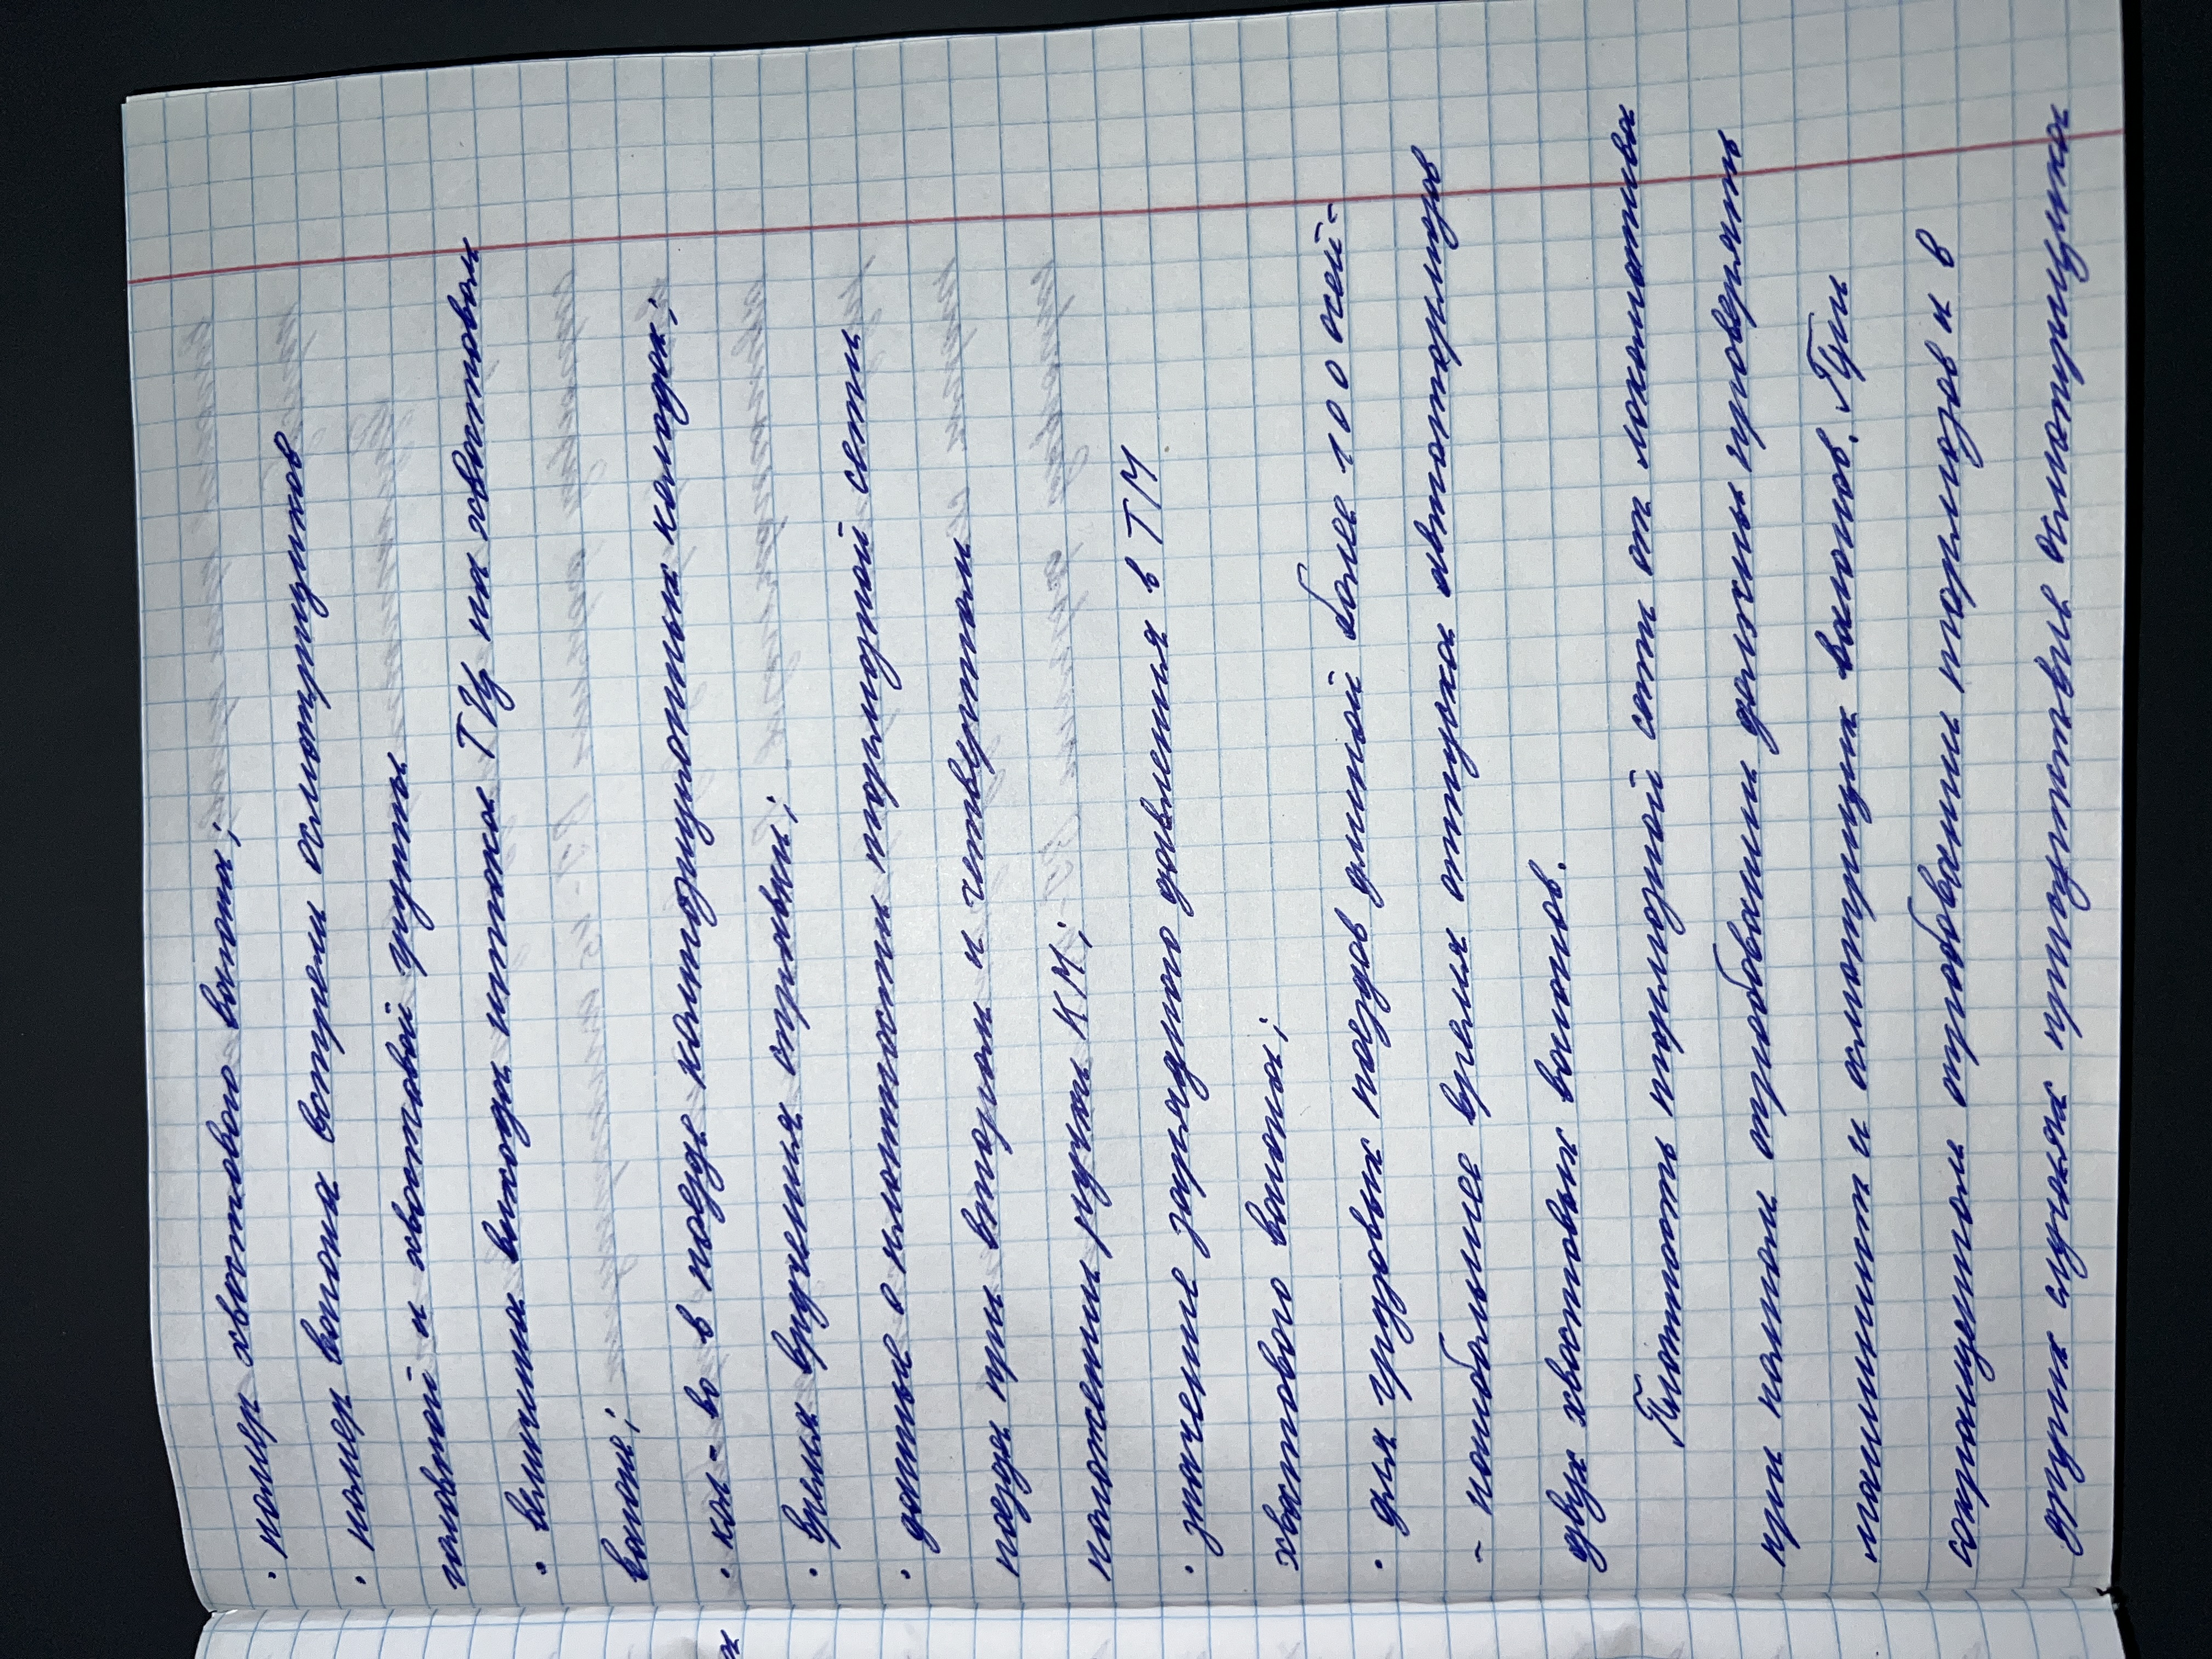 · номер хвостового вагона;
· номер вагона встречи осмотрщиков
головной и хвостовой группы
· величина выхода штока ТЦ на хвостовом
вагоне;
· кол-во в поезде композиционных колодок;
· время вручения справки;
· данные о плотности тормозной сети
поезда при втором и четвертом
положении ручки КМ;
· значение зарядного давления в ТМ
хвостового вагона;
· для грузовых поездов длиной более 100 осей-
- наибольшее время отпуска автотормозов
двух хвостовых вагонов.
Плотность тормозной сети от локомотива
при полном опробовании должны проверять
машинист и осмотрщик вагонов. При
сокращенном опробовании тормозов и в
других случаях присутствие осмотрщика